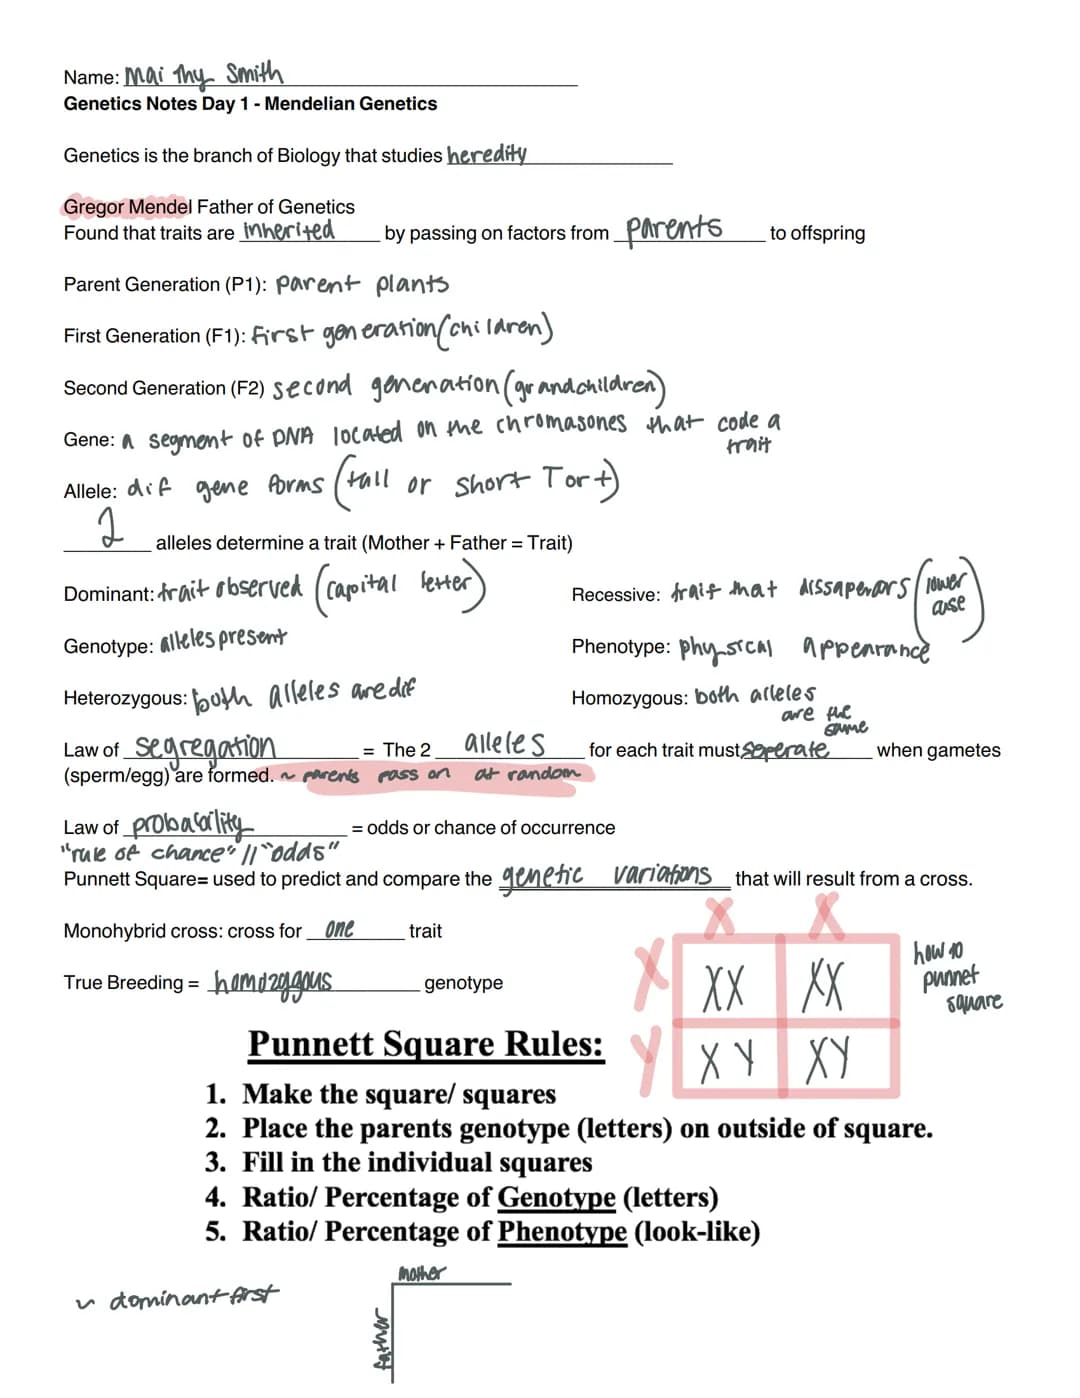 Name: Mai Thy Smith
Genetics Notes Day 1 - Mendelian Genetics
Genetics is the branch of Biology that studies heredity
Gregor Mendel Father of Genetics
Found that traits are inherited by passing on factors from parents to offspring
Parent Generation (P1): parent plants
First Generation (F1): first generation (children)
Second Generation (F2) second generation (grandchildren)
Gene: A segment of DNA located on the chromasones that code a
trait
Allele: dif gene forms (tall or short T or t)
2 alleles determine a trait (Mother + Father = Trait)
Dominant: trait observed (capital letter)
Recessive: trait that dissapears (lower
case)
Genotype: alleles present
Phenotype: physical appearance
Heterozygous: both alleles are dif
Homozygous: both alleles
are the
same
Law of segregation = The 2 alleles for each trait must seperate when gametes
(sperm/egg) are formed. ~ parents pass on at random
Law of probability = odds or chance of occurrence
"rule of chance" // "odds"
Punnett Square= used to predict and compare the genetic variations that will result from a cross.
Monohybrid cross: cross for one trait
True Breeding = homozygous genotype
X X
X XX XX
Y XY XY
how to
punnet
square
Punnett Square Rules:
1. Make the square/ squares
2. Place the parents genotype (letters) on outside of square.
3. Fill in the individual squares
4. Ratio/ Percentage of Genotype (letters)
5. Ratio/ Percentage of Phenotype (look-like)
~ dominant first
mother
father